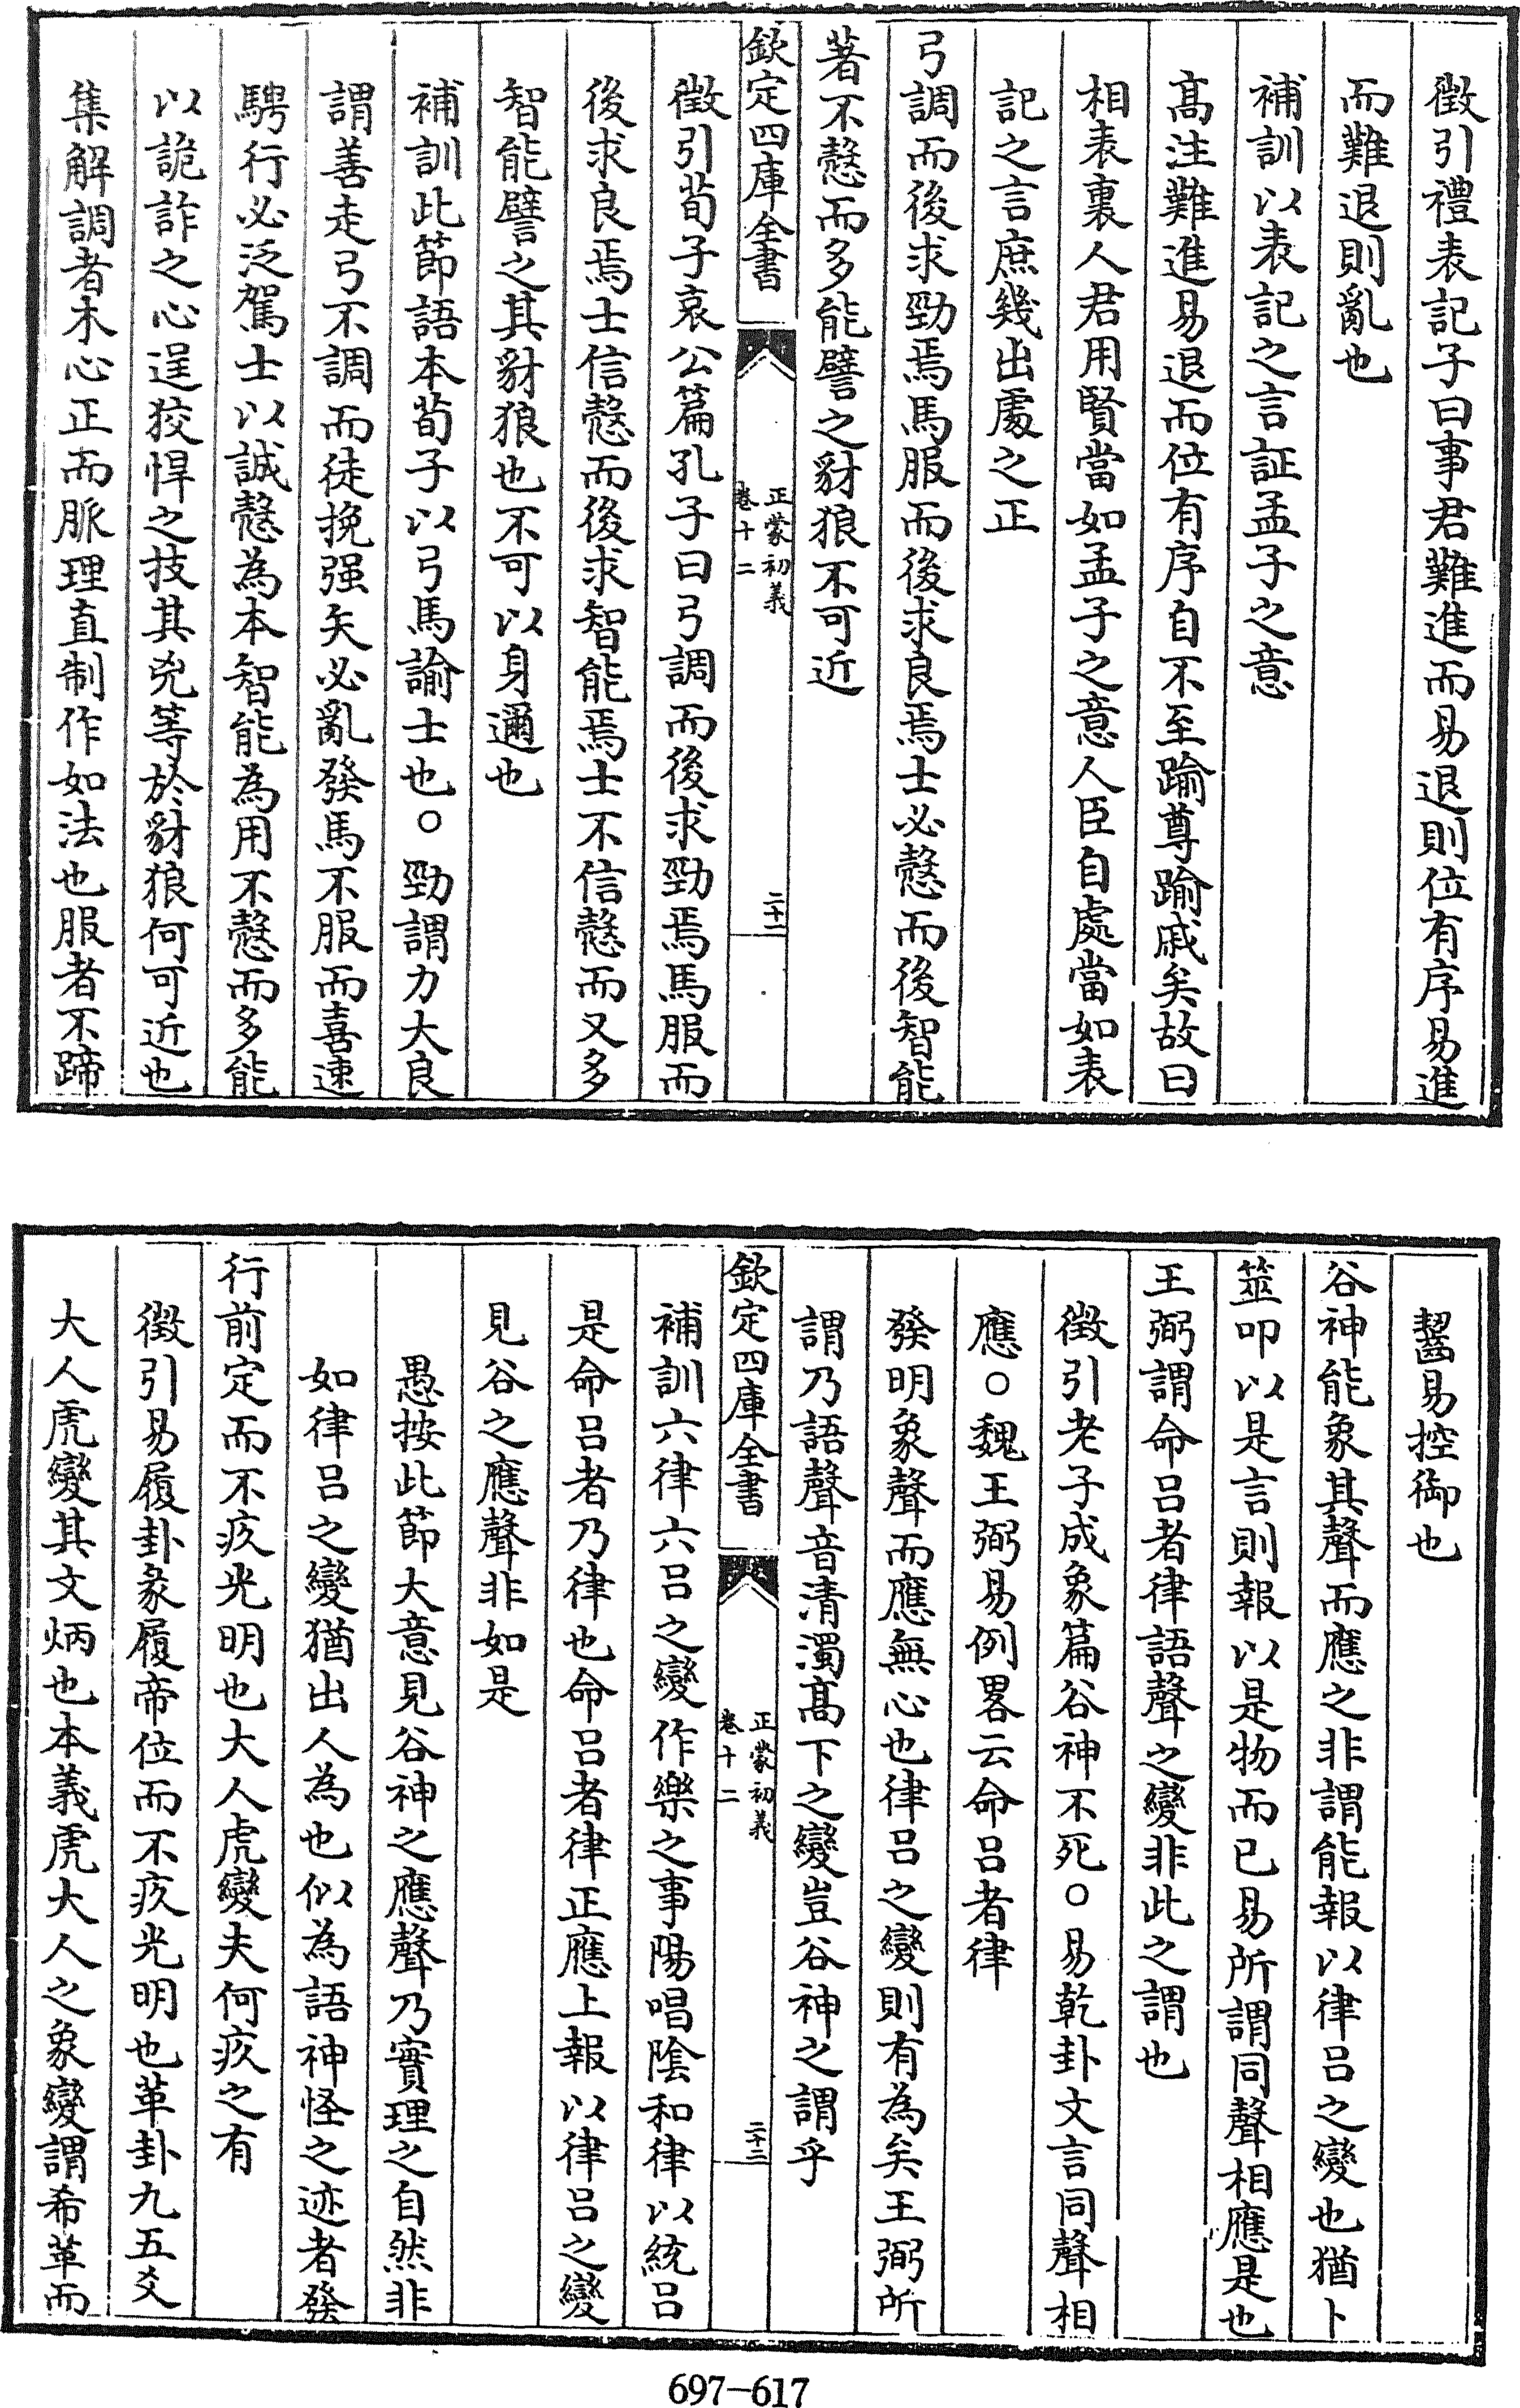 徵引禮表記子曰事君難進而易退則位有序易進
而難退則亂也
補訓以表記之言証孟子之意
髙注難進易退而位有序自不至踰尊踰戚矣故曰
相表裏人君用賢當如孟子之意人臣自處當如表
記之言庶幾出處之正
弓調而後求勁焉馬服而後求良焉士必慤而後智能
著不慤而多能譬之豺狼不可近
欽定四庫全書
正蒙初義
卷十二
二十一
徵引荀子哀公篇孔子曰弓調而後求勁焉馬服而
後求良焉士信慤而後求智能焉士不信慤而又多
智能譬之其豺狼也不可以身邇也
補訓此節語本荀子以弓馬諭士也○勁謂力大良
謂善走弓不調而徒挽强矢必亂發馬不服而喜速
騁行必泛駕士以誠慤為本智能為用不慤而多能
以詭詐之心逞狡悍之技其兇等於豺狼何可近也
集解調者木心正而脈理直制作如法也服者不蹄
齧易控御也
谷神能象其聲而應之非謂能報以律吕之變也猶卜
筮叩以是言則報以是物而已易所謂同聲相應是也
王弼謂命吕者律語聲之變非此之謂也
徵引老子成象篇谷神不死○易乾卦文言同聲相
應○魏王弼易例畧云命吕者律
發明象聲而應無心也律吕之變則有為矣王弼所
謂乃語聲音清濁髙下之變豈谷神之謂乎
欽定四庫全書
正蒙初義
卷十二
二十二
補訓六律六吕之變作樂之事陽唱陰和律以統吕
是命吕者乃律也命吕者律正應上報以律吕之變
見谷之應聲非如是
愚按此節大意見谷神之應聲乃實理之自然非
如律吕之變猶出人為也似為語神怪之迹者發
行前定而不疚光明也大人虎變夫何疚之有
徵引易履卦彖履帝位而不疚光明也革卦九五爻
大人虎變其文炳也本義虎大人之象變謂希革而
697-617